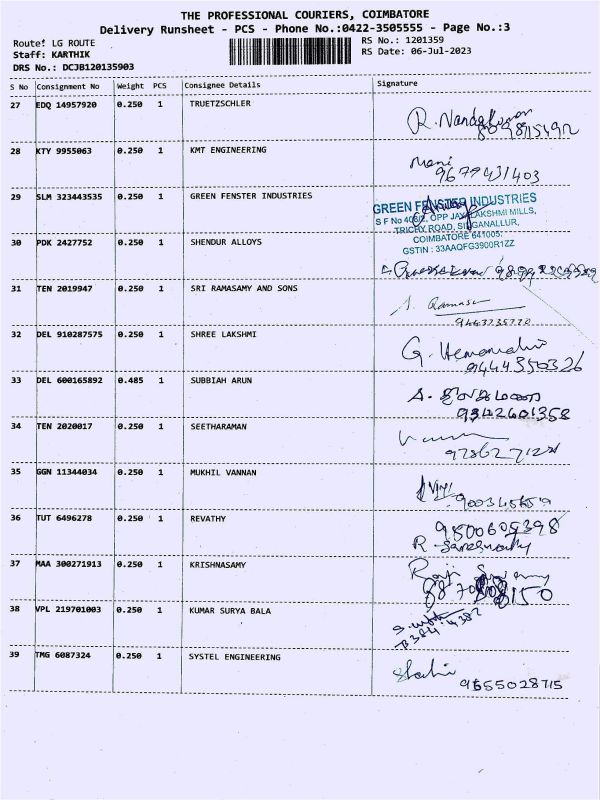 THE PROFESSIONAL COURIERS, COIMBATORE
Delivery Runsheet - PCS - Phone No.:0422-3505555 - Page No.:3
Route: LG ROUTE
RS No.: 1201359
Staff: KARTHIK
RS Date: 06-Jul-2023
DRS No.: DCJB120135903
S No Consignment No Weight PCS Consignee Details Signature
27 EDQ 14957920 0.250 1 TRUETZSCHLER
R. Nandakumar
28 KTY 9955063 0.250 1 KMT ENGINEERING
Mani
9677431403
29 SLM 323443535 0.250 1 GREEN FENSTER INDUSTRIES
GREEN FENSTER INDUSTRIES
S F No 408/2, OPP JAYALAKSHMI MILLS,
TRICHY ROAD, SINGANALLUR,
COIMBATORE 641005.
GSTIN : 33AAQFG3900R1ZZ
30 PDK 2427752 0.250 1 SHENDUR ALLOYS
31 TEN 2019947 0.250 1 SRI RAMASAMY AND SONS
9443735770
32 DEL 910287575 0.250 1 SHREE LAKSHMI
9444350326
33 DEL 600165892 0.485 1 SUBBIAH ARUN
9342601358
34 TEN 2020017 0.250 1 SEETHARAMAN
35 GGN 11344034 0.250 1 MUKHIL VANNAN
36 TUT 6496278 0.250 1 REVATHY
9500605398
37 MAA 300271913 0.250 1 KRISHNASAMY
38 VPL 219701003 0.250 1 KUMAR SURYA BALA
39 TMG 6087324 0.250 1 SYSTEL ENGINEERING
9655028715